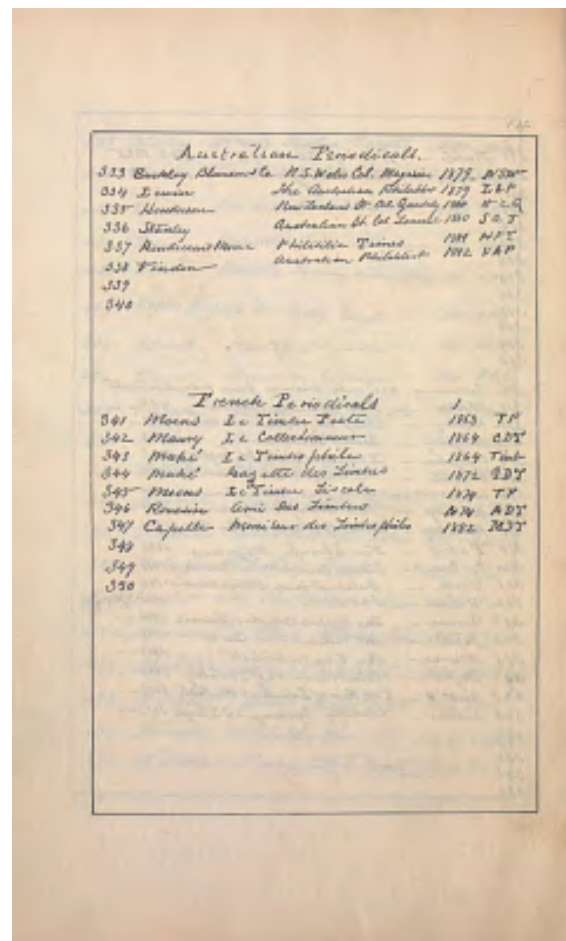 Australian Periodicals.
333 Buckley Co N.S. Wales Col. Magazine 1879 NSW
334 The Australian Philatelist 1879
335 Henderson New Zealand 1880
336 Stanley Australian St. Col 1880
337 Philatelic Times
338 Vindon Australian Philatelist 1882 VAP
339
340
French Periodicals
341 Moens Le Timbre Poste 1863 TP
342 Maury Le Collectionneur 1864 CDT
343 Mahé Le Timbrophile 1864 Timb
344 Mahé Gazette des Timbres 1872 GDT
345 Moens Le Timbre Fiscale 1874 TF
346 Roussin Ami des Timbres 1874 ADT
347 Capelle Moniteur des Timbrophiles 1882 MDT
348
349
350